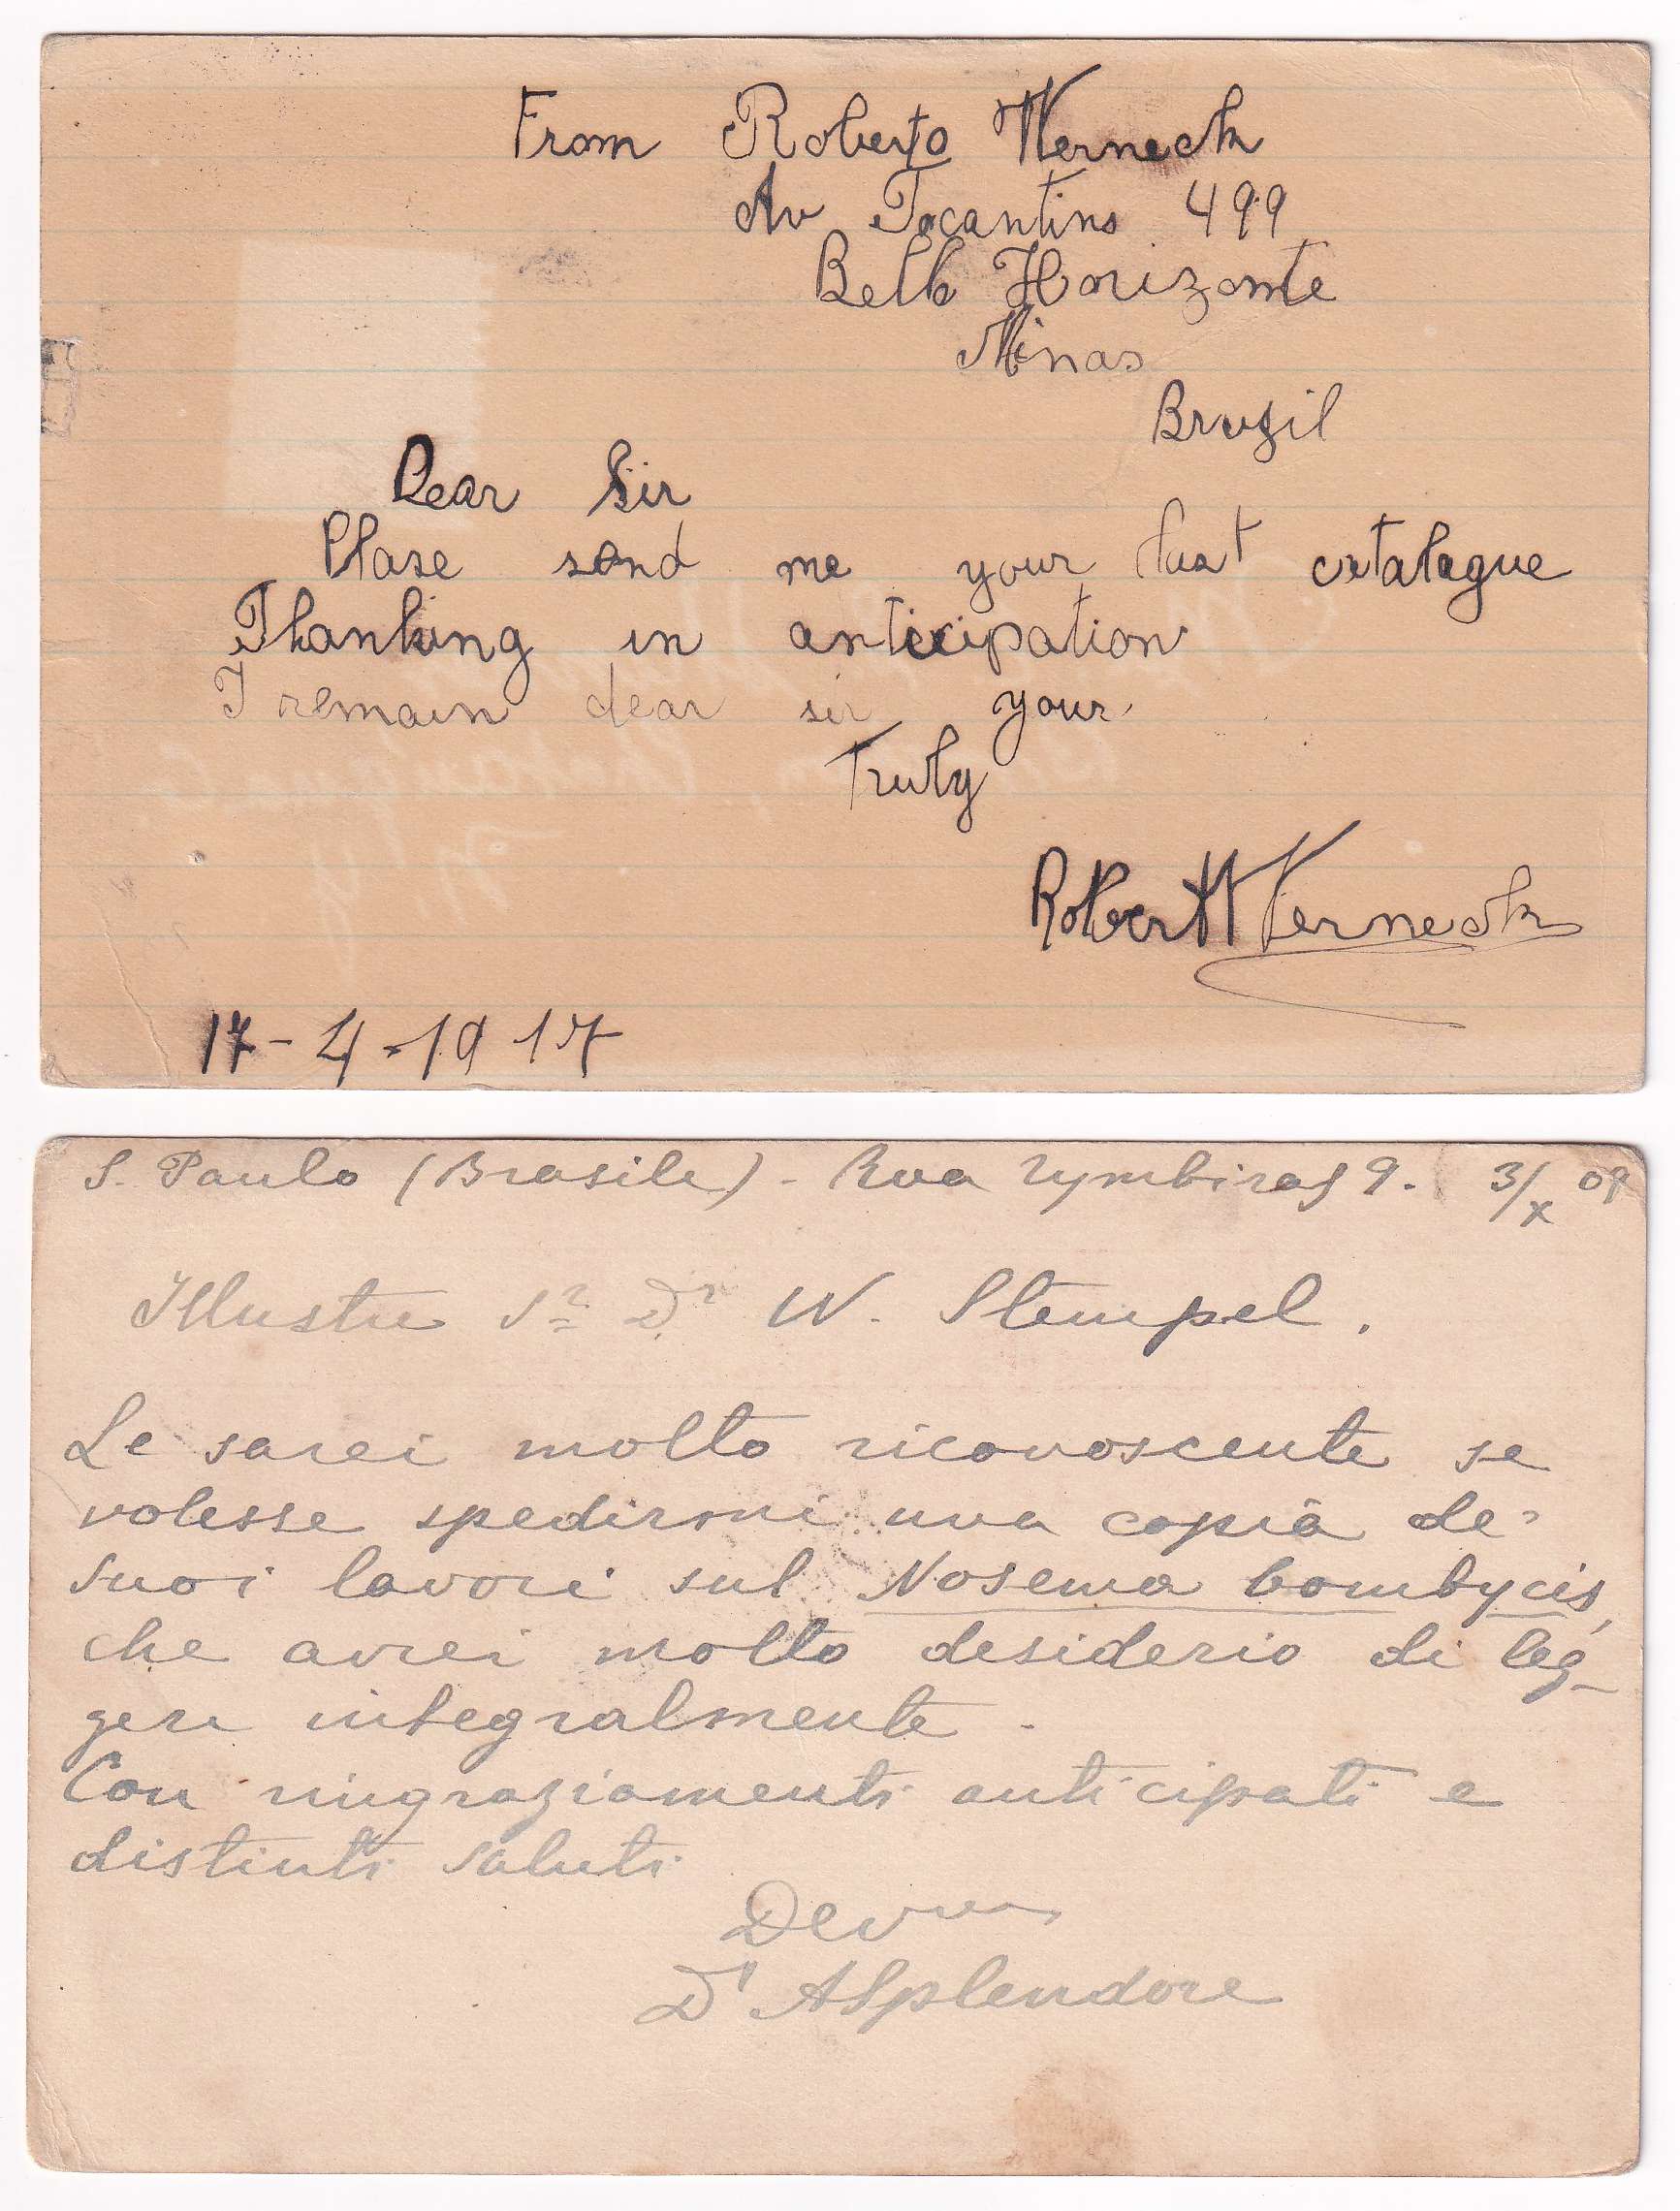 From Roberto Werneck
Av Tocantins 499
Bello Horizonte
Minas
Brazil
Dear Sir
Plase send me your last catalogue
Thanking in anticipation
I remain dear sir your
Truly
Robert Werneck
17-4-1917
S. Paulo (Brasile) - Rua Tymbiras 9. 3/X 09
Illustre Sr Dr W. Stempel.
Le sarei molto riconoscente se
volesse spedirmi una copia de'
suoi lavori sul Nosema bombycis,
che avrei molto desiderio di leg-
gere integralmente.
Con ringraziamenti anticipati e
distinti saluti
Dr ASplendore